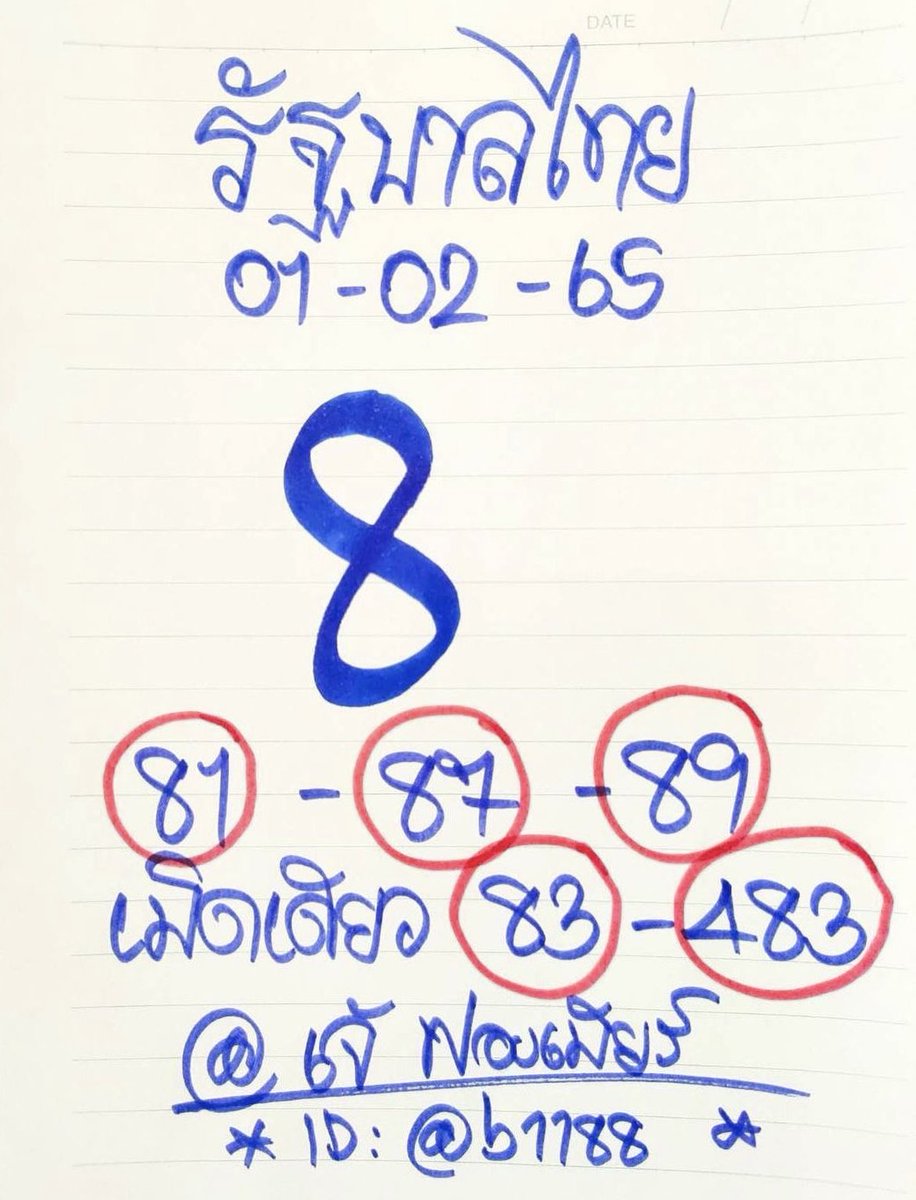 DATE / /
รัฐบาลไทย
01-02-65
8
81 - 87 - 89
เม็ดเดียว 83 - 483
@ เจ๊
* ID: @b1188 *